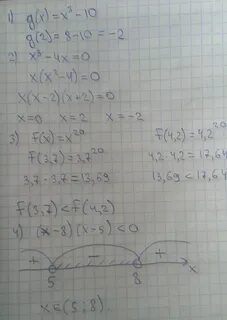 1) g(x) = x³ - 10
g(2) = 8 - 10 = -2
2) x³ - 4x = 0
x(x² - 4) = 0
x(x-2)(x+2) = 0
x = 0 x = 2 x = -2
3) f(x) = x²⁰ f(4,2) = 4,2²⁰
f(3,7) = 3,7²⁰ 4,2 · 4,2 = 17,64
3,7 · 3,7 = 13,69 13,69 < 17,64
f(3,7) < f(4,2)
4) (x-8)(x-5) < 0
+ - +
5 8 x
x ∈ (5; 8).